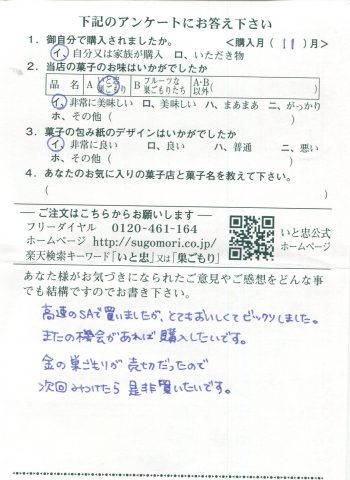 下記のアンケートにお答え下さい
1．御自分で購入されましたか。 ＜購入月（ 11 ）月＞
イ、自分又は家族が購入 ロ、いただき物
2．当店の菓子のお味はいかがでしたか
品 名 A いと忠巣ごもり B フルーツな巣ごもりたち A・B以外（ ）
イ、非常に美味しい ロ、美味しい ハ、まあまあ ニ、がっかり
ホ、その他（ ）
3．菓子の包み紙のデザインはいかがでしたか
イ、非常に良い ロ、良い ハ、普通 ニ、悪い
ホ、その他（ ）
4．あなたのお気に入りの菓子店と菓子名を教えて下さい。
（ ）
― ご注文はこちらからお願いします ―
フリーダイヤル 0120-461-164
ホームページ http://sugomori.co.jp/
楽天検索キーワード「いと忠」又は「巣ごもり」
いと忠公式
ホームページ
あなた様がお気づきになられたご意見やご感想をどんな事
でも結構ですのでお書き下さい。
高速のSAで買いましたが、とてもおいしくてビックリしました。
またの機会があれば購入したいです。
金の巣ごもりが売切だったので
次回みつけたら是非買いたいです。